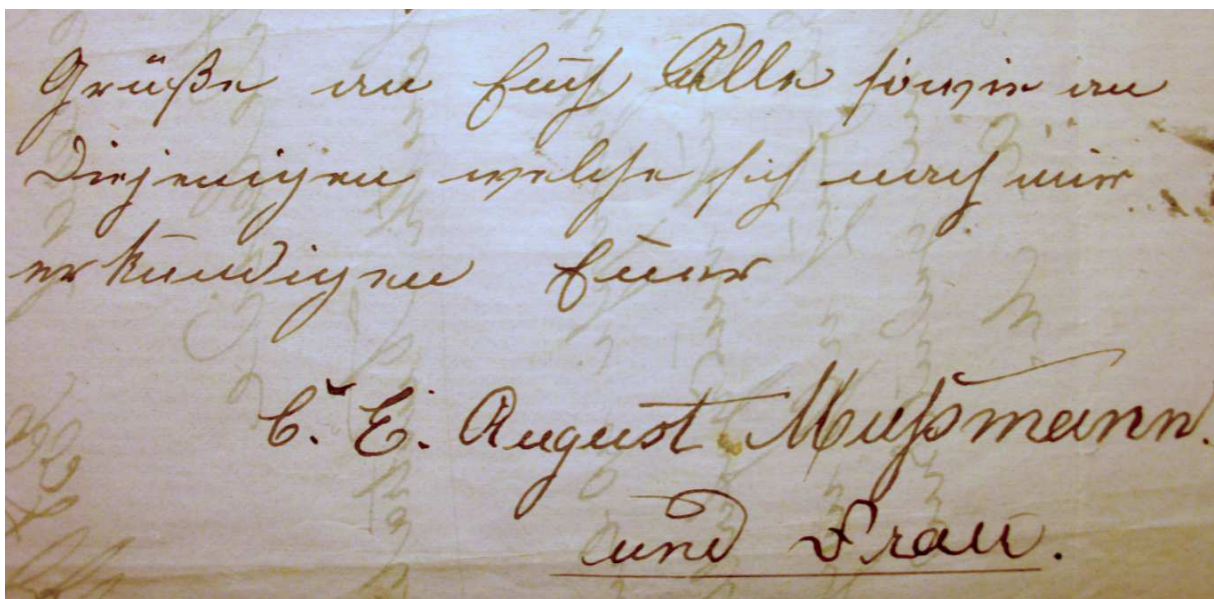 Grüße an Euch Alle sowie an
Diejenigen welche sich nach mir
erkundigen Euer
C. E. August Mußmann.
und Frau.